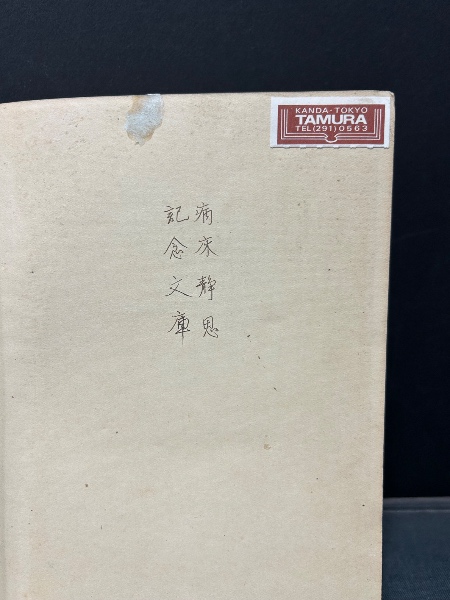 KANDA-TOKYO
TAMURA
TEL(291)0563
病床静思
記念文庫